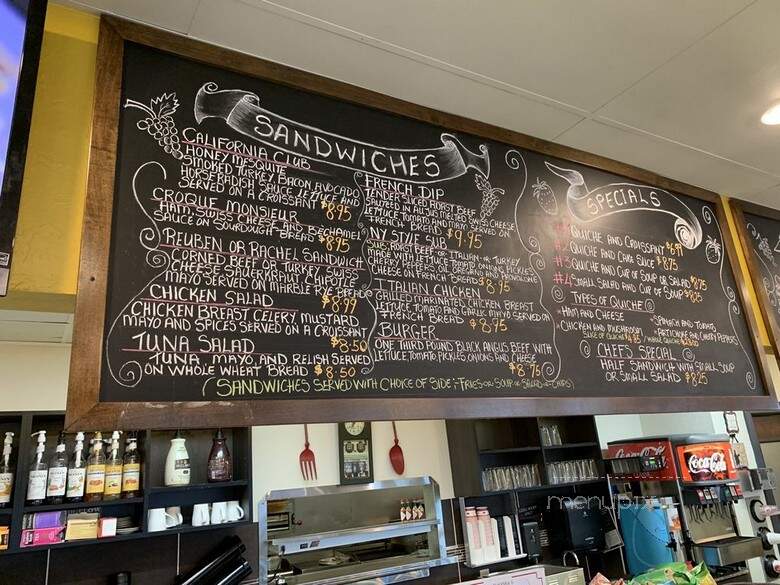 SANDWICHES
CALIFORNIA CLUB
HONEY MESQUITE
SMOKED TURKEY, BACON AVOCADO
HORSERADISH SAUCE LETTUCE AND
SERVED ON A CROISSANT $8.95
CROQUE MONSIEUR
HAM, SWISS CHEESE AND BECHAMEL
SAUCE ON SOURDOUGH BREAD $8.95
REUBEN OR RACHEL SANDWICH
CORNED BEEF OR TURKEY, SWISS
CHEESE SAUERKRAUT CHIPOTLE
MAYO SERVED ON MARBLE RYE BREAD
$8.99
CHICKEN SALAD
CHICKEN BREAST CELERY MUSTARD
MAYO AND SPICES SERVED ON A CROISSANT
$8.50
TUNA SALAD
TUNA, MAYO, AND RELISH SERVED
ON WHOLE WHEAT BREAD $8.50
FRENCH DIP
TENDER SLICED ROAST BEEF
SAUTEED IN AU JUS MELTED SWISS CHEESE
LETTUCE TOMATO AND MAYO SERVED ON
FRENCH BREAD $9.95
NY STYLE SUB
SUB, ROAST BEEF OR ITALIAN OR TURKEY
MADE WITH LETTUCE TOMATO ONIONS PICKLES
CHERRY PEPPERS OIL OREGANO AND PROVOLONE
CHEESE ON FRENCH BREAD $8.95
ITALIAN CHICKEN
GRILLED MARINATED CHICKEN BREAST
LETTUCE TOMATO AND GARLIC MAYO SERVED ON
FRENCH BREAD $8.95
BURGER
ONE THIRD POUND BLACK ANGUS BEEF WITH
LETTUCE TOMATO PICKLES ONIONS AND CHEESE
$8.75
SANDWICHES SERVED WITH CHOICE OF SIDE:-FRIES OR SOUP OR SALAD OR CHIPS
SPECIALS
#1 QUICHE AND CROISSANT $6.99
#2 QUICHE AND CAKE SLICE $8.75
#3 QUICHE AND CUP OF SOUP OR SALAD $8.75
#4 SMALL SALAD AND CUP OF SOUP $8.25
TYPES OF QUICHE
HAM AND CHEESE
SPINACH AND TOMATO
CHICKEN AND MUSHROOM
ARTICHOKE AND CHERRY PEPPERS
SLICE OF QUICHE / WHOLE QUICHE
CHEFS SPECIAL
HALF SANDWICH WITH SMALL SOUP
OR SMALL SALAD $8.25
Coca-Cola
Coca-Cola
menupix